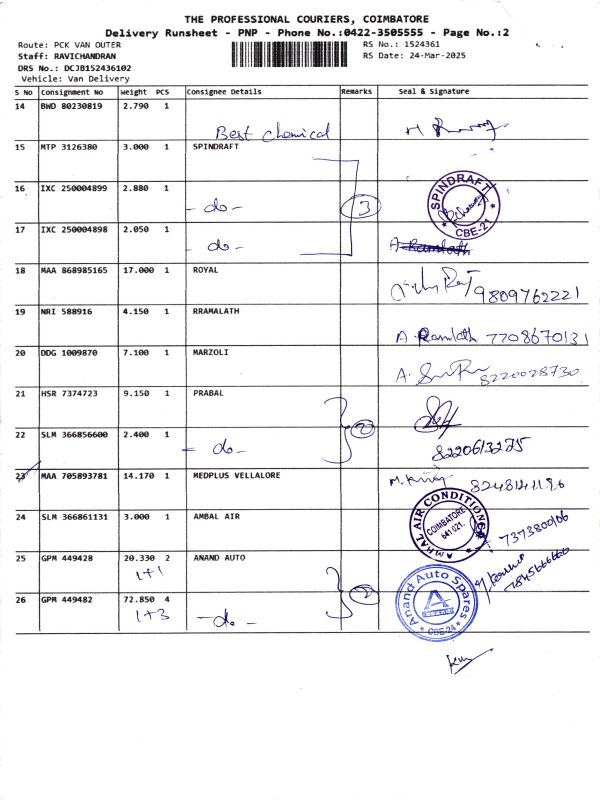 THE PROFESSIONAL COURIERS, COIMBATORE
Delivery Runsheet - PNP - Phone No.:0422-3505555 - Page No.:2
Route: PCK VAN OUTER RS No.: 1524361
Staff: RAVICHANDRAN RS Date: 24-Mar-2025
DRS No.: DCJB152436102
Vehicle: Van Delivery
S No Consignment No Weight PCS Consignee Details Remarks Seal & Signature
14 BWD 80230819 2.790 1
Best chemical
15 MTP 3126380 3.000 1 SPINDRAFT
16 IXC 250004899 2.880 1
- do - 3 SPINDRAFT CBE-21
17 IXC 250004898 2.050 1
- do - A. Ramlath
18 MAA 868985165 17.000 1 ROYAL
9809762221
19 NRI 588916 4.150 1 RRAMALATH
A. Ramlath 7708670131
20 DDG 1009870 7.100 1 MARZOLI
A. 8220028730
21 HSR 7374723 9.150 1 PRABAL
2
22 SLM 366856600 2.400 1
- do - 8220613275
23 MAA 705893781 14.170 1 MEDPLUS VELLALORE
24 SLM 366861131 3.000 1 AMBAL AIR
AMHAL AIR CONDITIONER COIMBATORE 641 021.
25 GPM 449428 20.330 2 ANAND AUTO
1+1
26 GPM 449482 72.850 4
1+3 - do - 2 Anand Auto Spares CBE-24